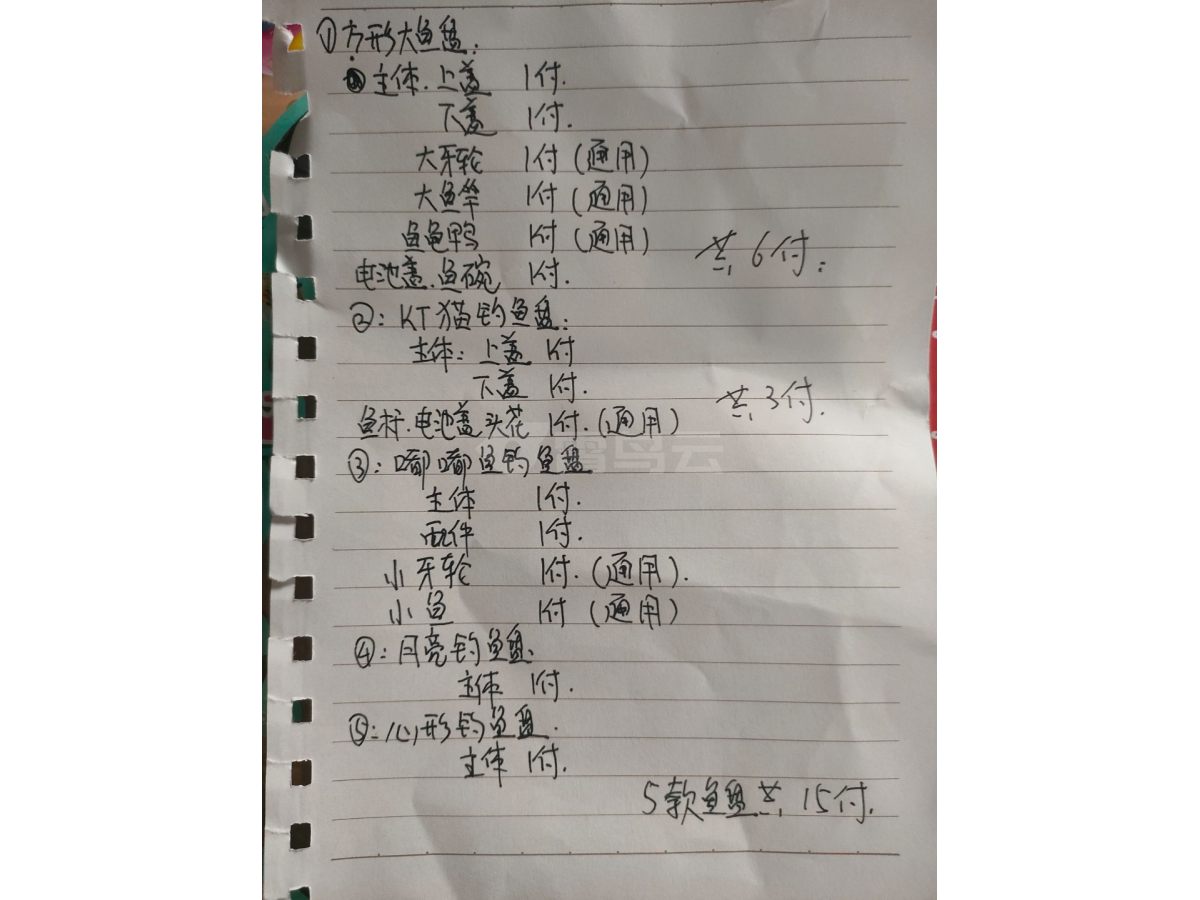 ①方形大鱼盘:
主体.上盖 1付.
下盖 1付.
大牙轮 1付(通用)
大鱼竿 1付(通用)
鱼龟鸭 1付(通用)
共6付:
电池盖.鱼碗 1付.
②:KT猫钓鱼盘:
主体:上盖 1付
下盖 1付.
共3付.
鱼杆.电池盖头花 1付.(通用)
③:嘟嘟鱼钓鱼盘
主体 1付.
配件 1付.
小牙轮 1付.(通用).
小鱼 1付(通用)
④:月亮钓鱼盘:
主体 1付.
⑤:心形钓鱼盘.
主体 1付.
5款鱼盘共15付.